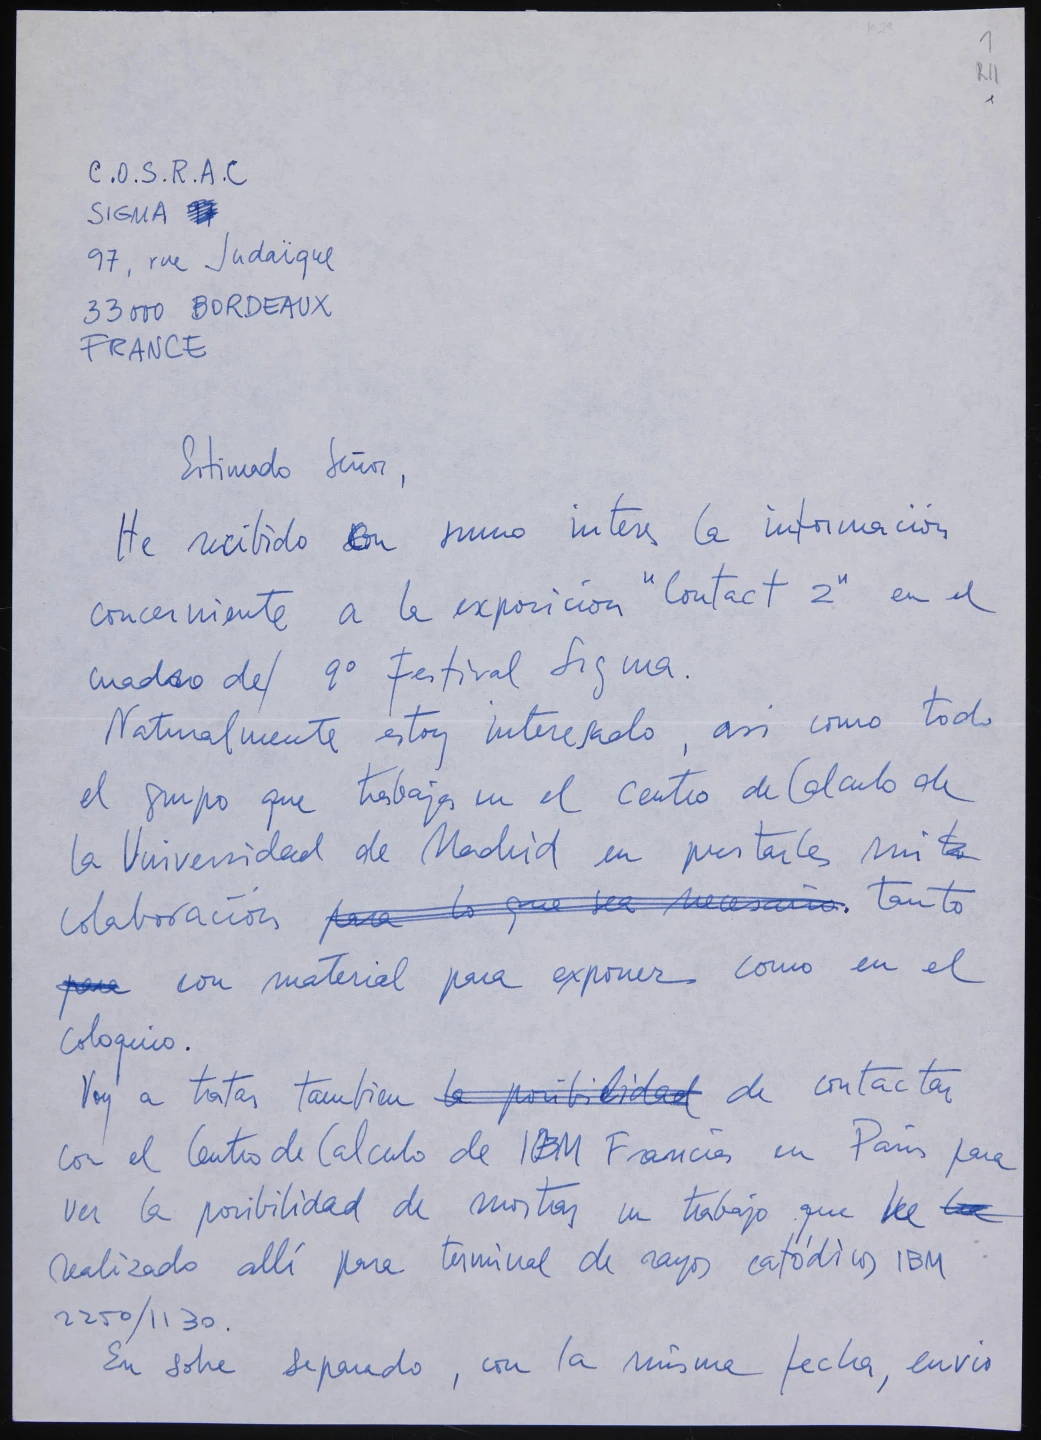 1
C.O.S.R.A.C
SIGMA
97, rue Judaïque
33000 BORDEAUX
FRANCE
Estimado Señor,
He recibido con sumo interes la información
concerniente a la exposicion "Contact 2" en el
cuadro del 9º Festival Sigma.
Naturalmente estoy interesado, asi como todo
el grupo que trabaja en el Centro de Calculo de
la Universidad de Madrid en prestarles mi
colaboración para lo que sea necesario. tanto
para con material para exponer como en el
coloquio.
Voy a tratar tambien la posibilidad de contactar
con el Centro de Calculo de IBM Francia en Paris para
ver la posibilidad de mostrar un trabajo que he
realizado allí para terminal de rayos catódicos IBM
2250/1130.
En sobre separado, con la misma fecha, envio